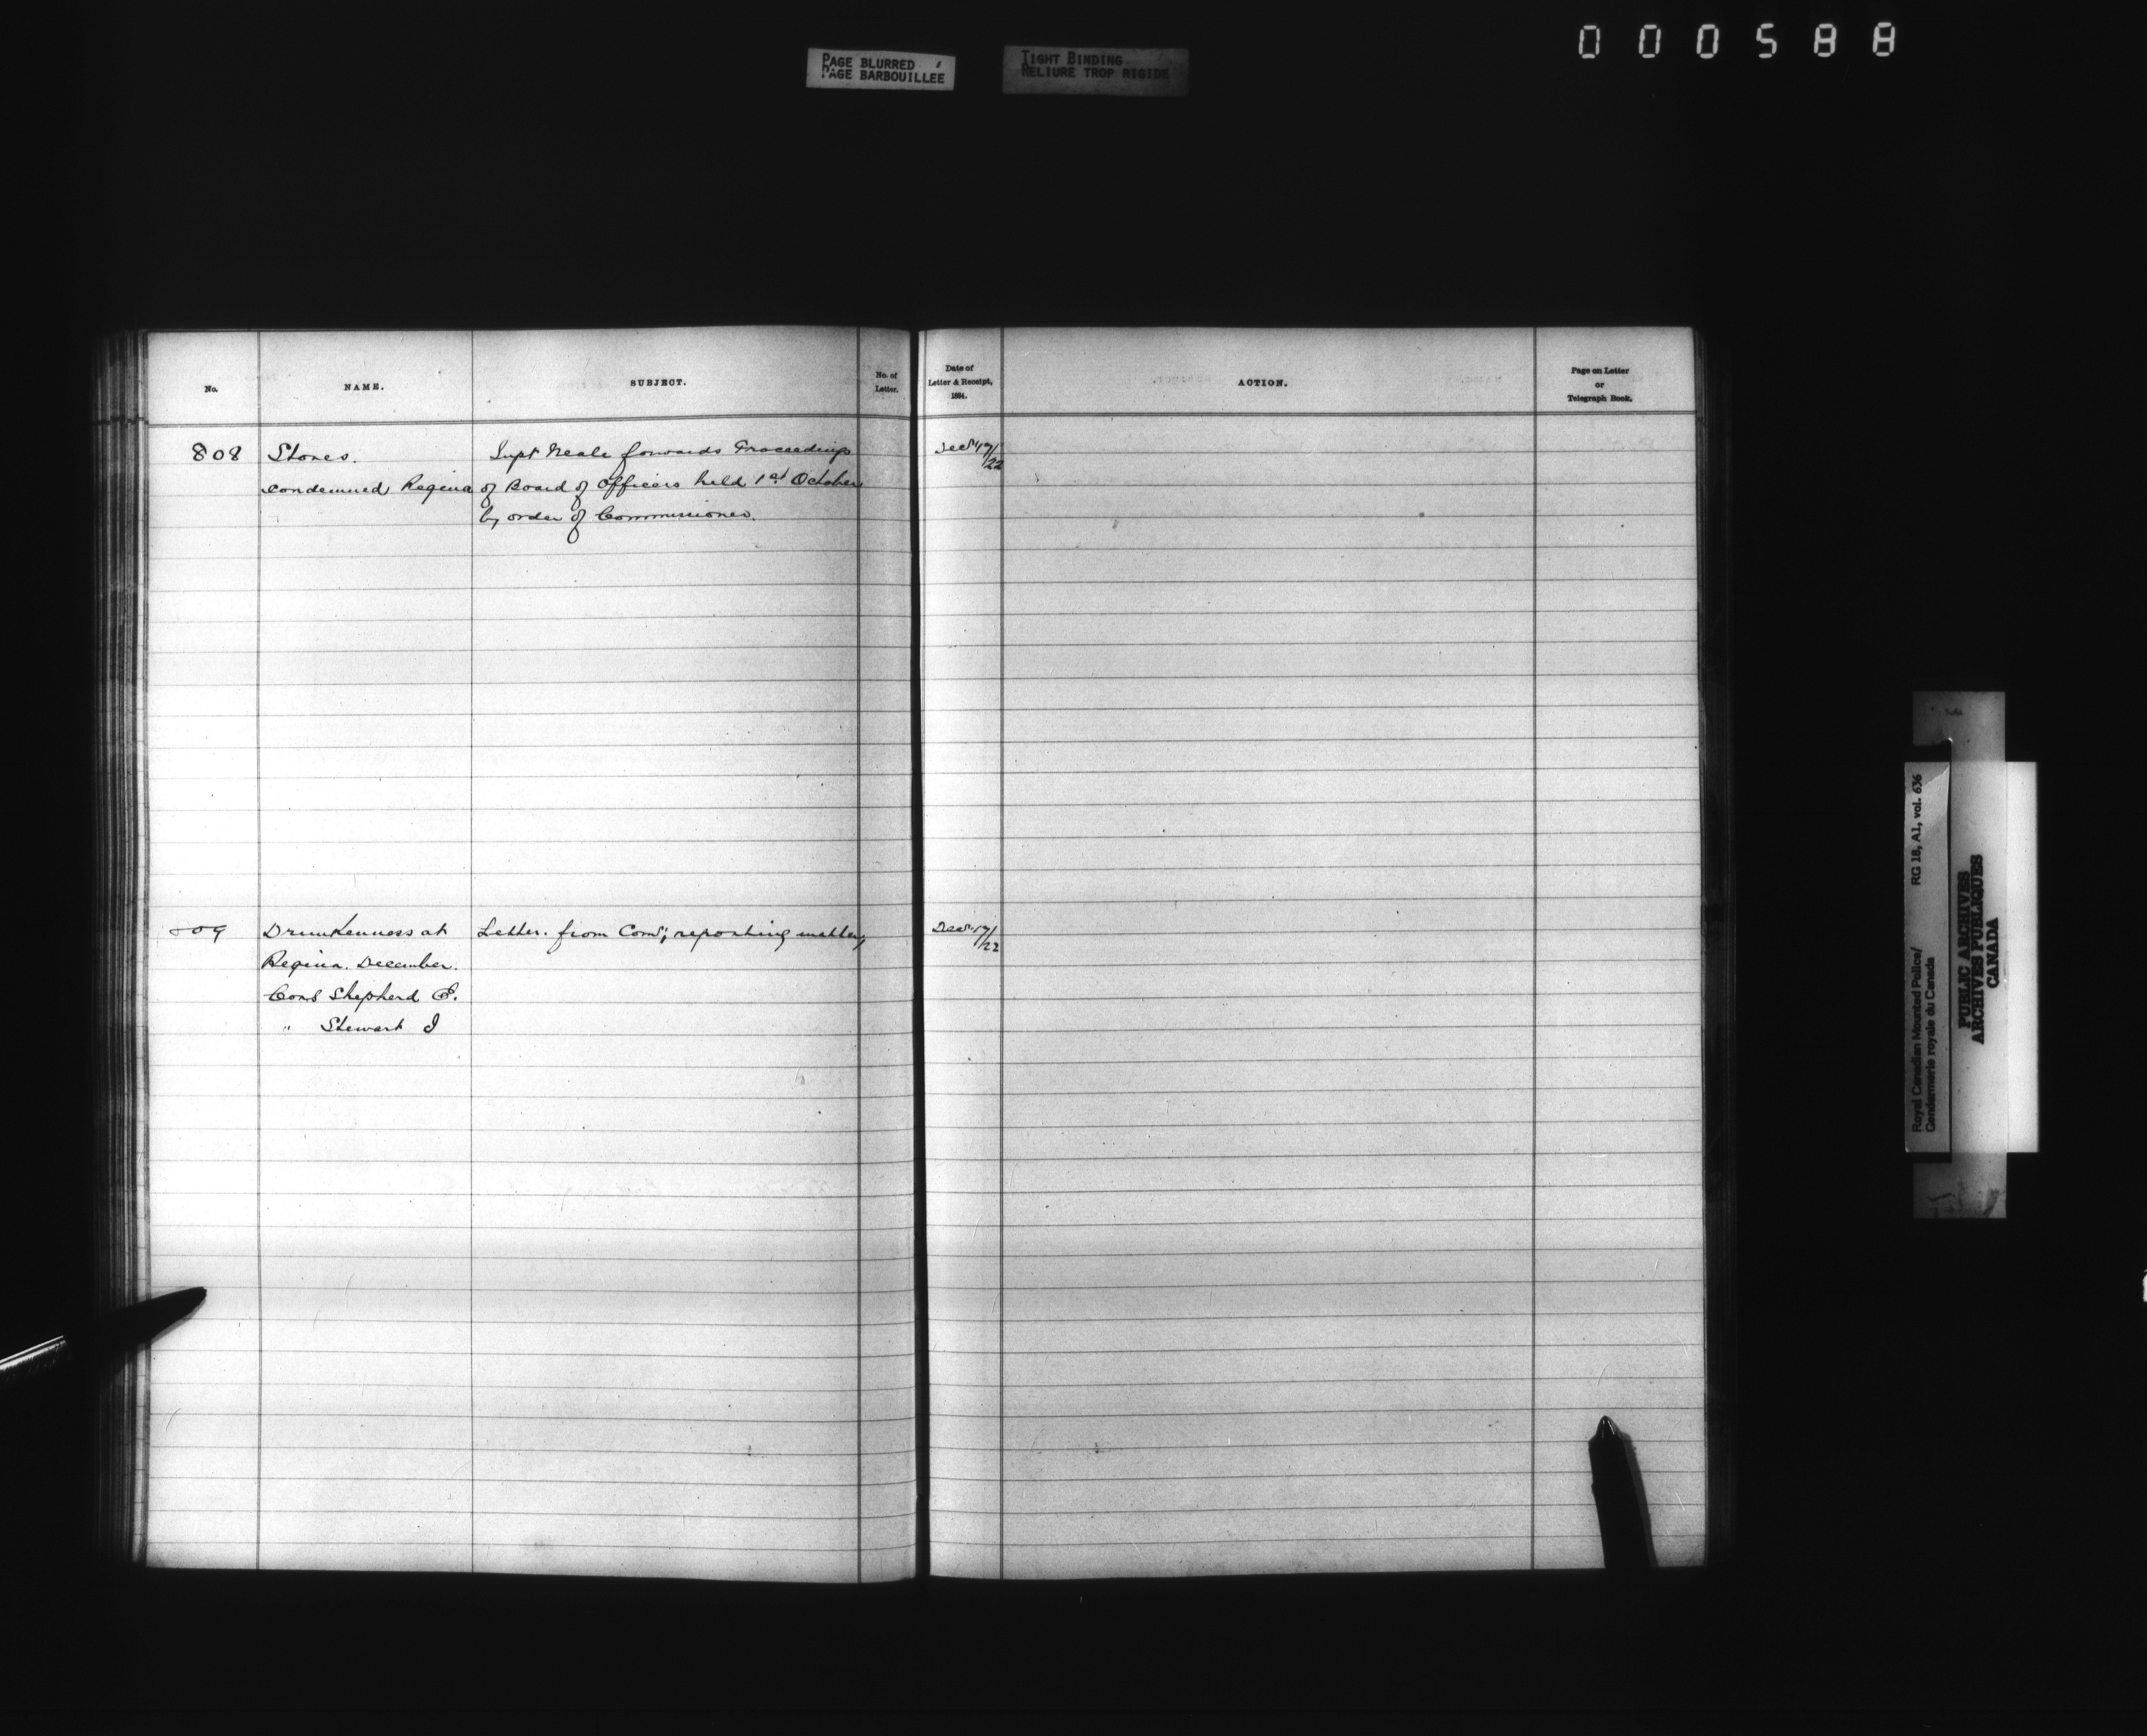 000588
PAGE BLURRED
PAGE BARBOUILLEE
TIGHT BINDING
RELIURE TROP RIGIDE
No.
NAME.
SUBJECT.
No. of
Letter.
Date of
Letter & Receipt,
1884.
ACTION.
Page on Letter
or
Telegraph Book.
808 Stores. Supt Neale forwards Proceedings Decr 17/22
condemned Regina of Board of Officers held 1st October
by order of Commissioner.
809 Drunkenness at Letter. from Comr; reporting matter, Decr 17/22
Regina. December.
Cons Shepherd E.
" Stewart J
Royal Canadian Mounted Police/ RG 18, A1, vol. 636
Gendarmerie royale du Canada
PUBLIC ARCHIVES
ARCHIVES PUBLIQUES
CANADA